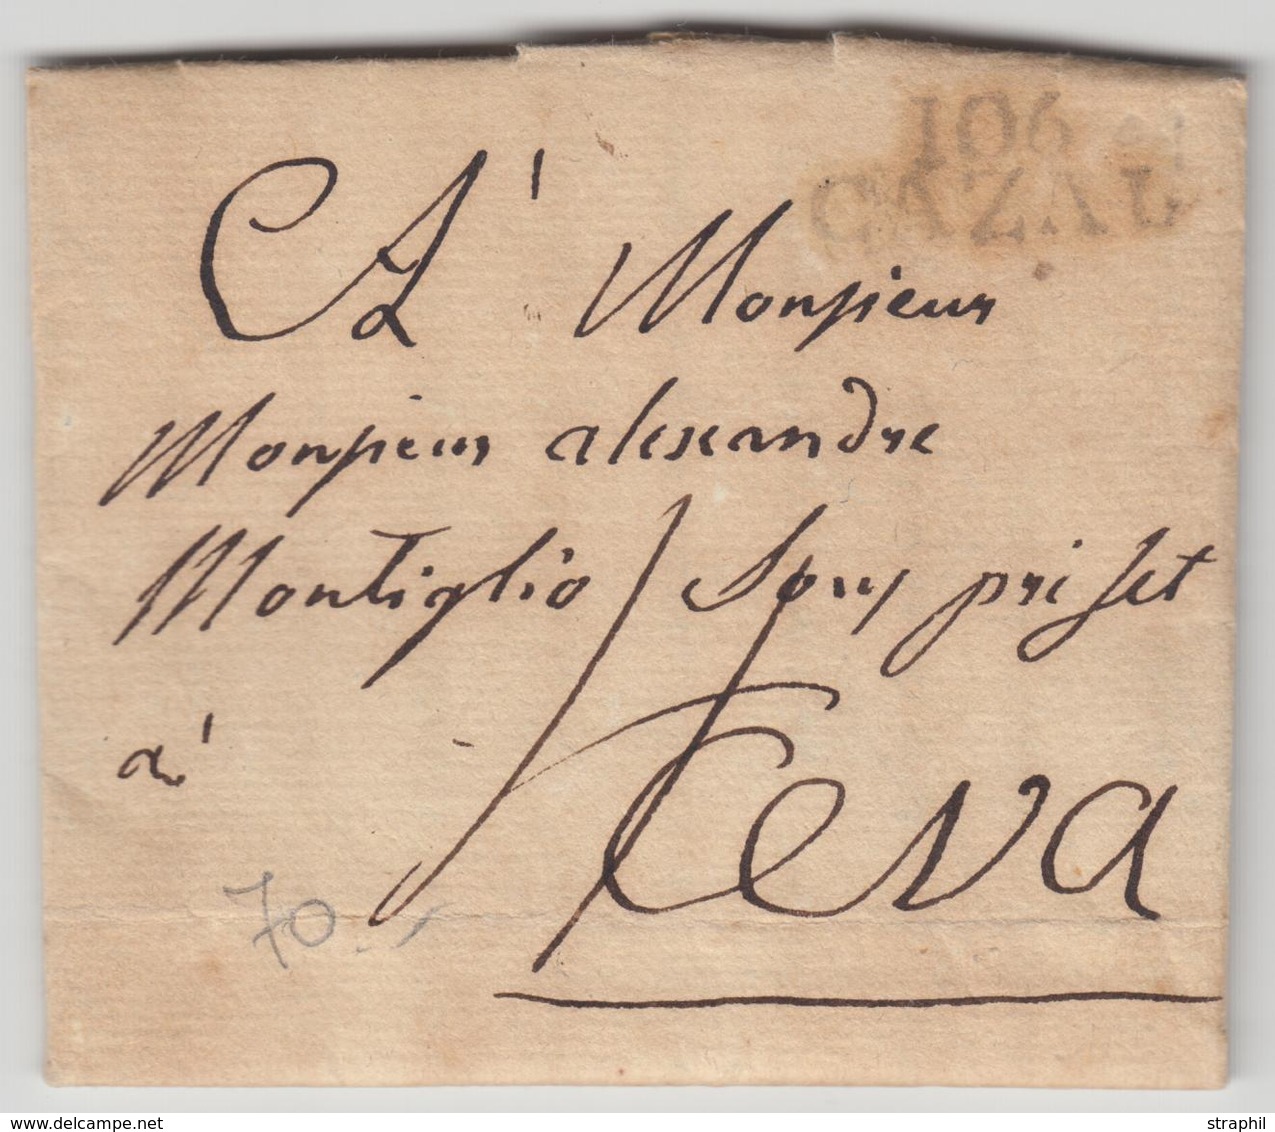 106
CAZAL
A' Monsieur
Monsieur alexandre
Montiglio Sous prifet
à
Ceva
70
delcampe.net
straphil